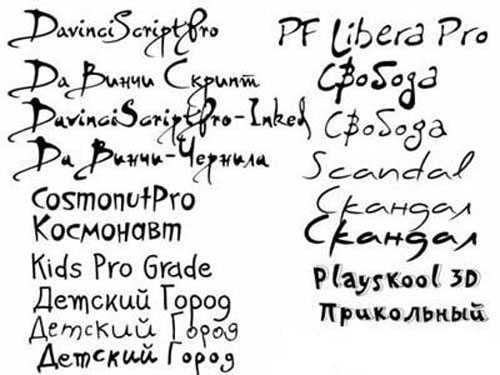 DavinciScriptPro
Да Винчи Скрипт
DavinciScriptPro-Inked
Да Винчи-Чернила
CosmonutPro
Космонавт
Kids Pro Grade
Детский Город
Детский Город
Детский Город
PF Libera Pro
Свобода
Свобода
Scandal
Скандал
Скандал
Playskool 3D
Прикольный